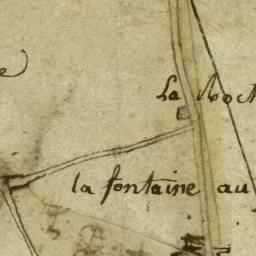 e
La Roch
la fontaine au